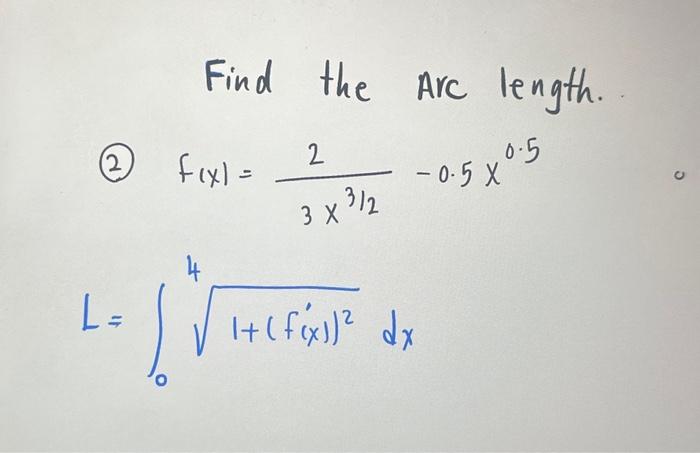 Find the Arc length.
② f(x) = 2 / 3 x^3/2 - 0.5 x^0.5
L = ∫_0^4 √(1+(f'(x))^2) dx